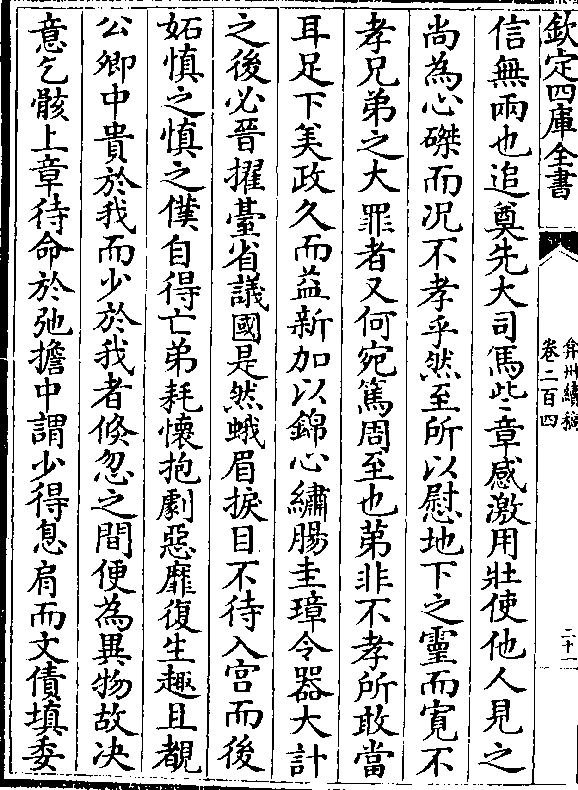 欽定四庫全書
弇州續稿
卷二百四
二十一
信無兩也追奠先大司馬些章感激用壯使他人見之
尚為心磔而况不孝乎然至所以慰地下之靈而寛不
孝兄弟之大罪者又何宛篤周至也苐非不孝所敢當
耳足下美政久而益新加以錦心繡腸圭璋令器大計
之後必晉擢臺省議國是然蛾眉捩目不待入宫而後
妬慎之慎之僕自得亡弟耗懷抱劇惡靡復生趣且覩
公卿中貴於我而少於我者倐忽之間便為異物故决
意乞骸上章待命於弛擔中謂少得息肩而文債填委